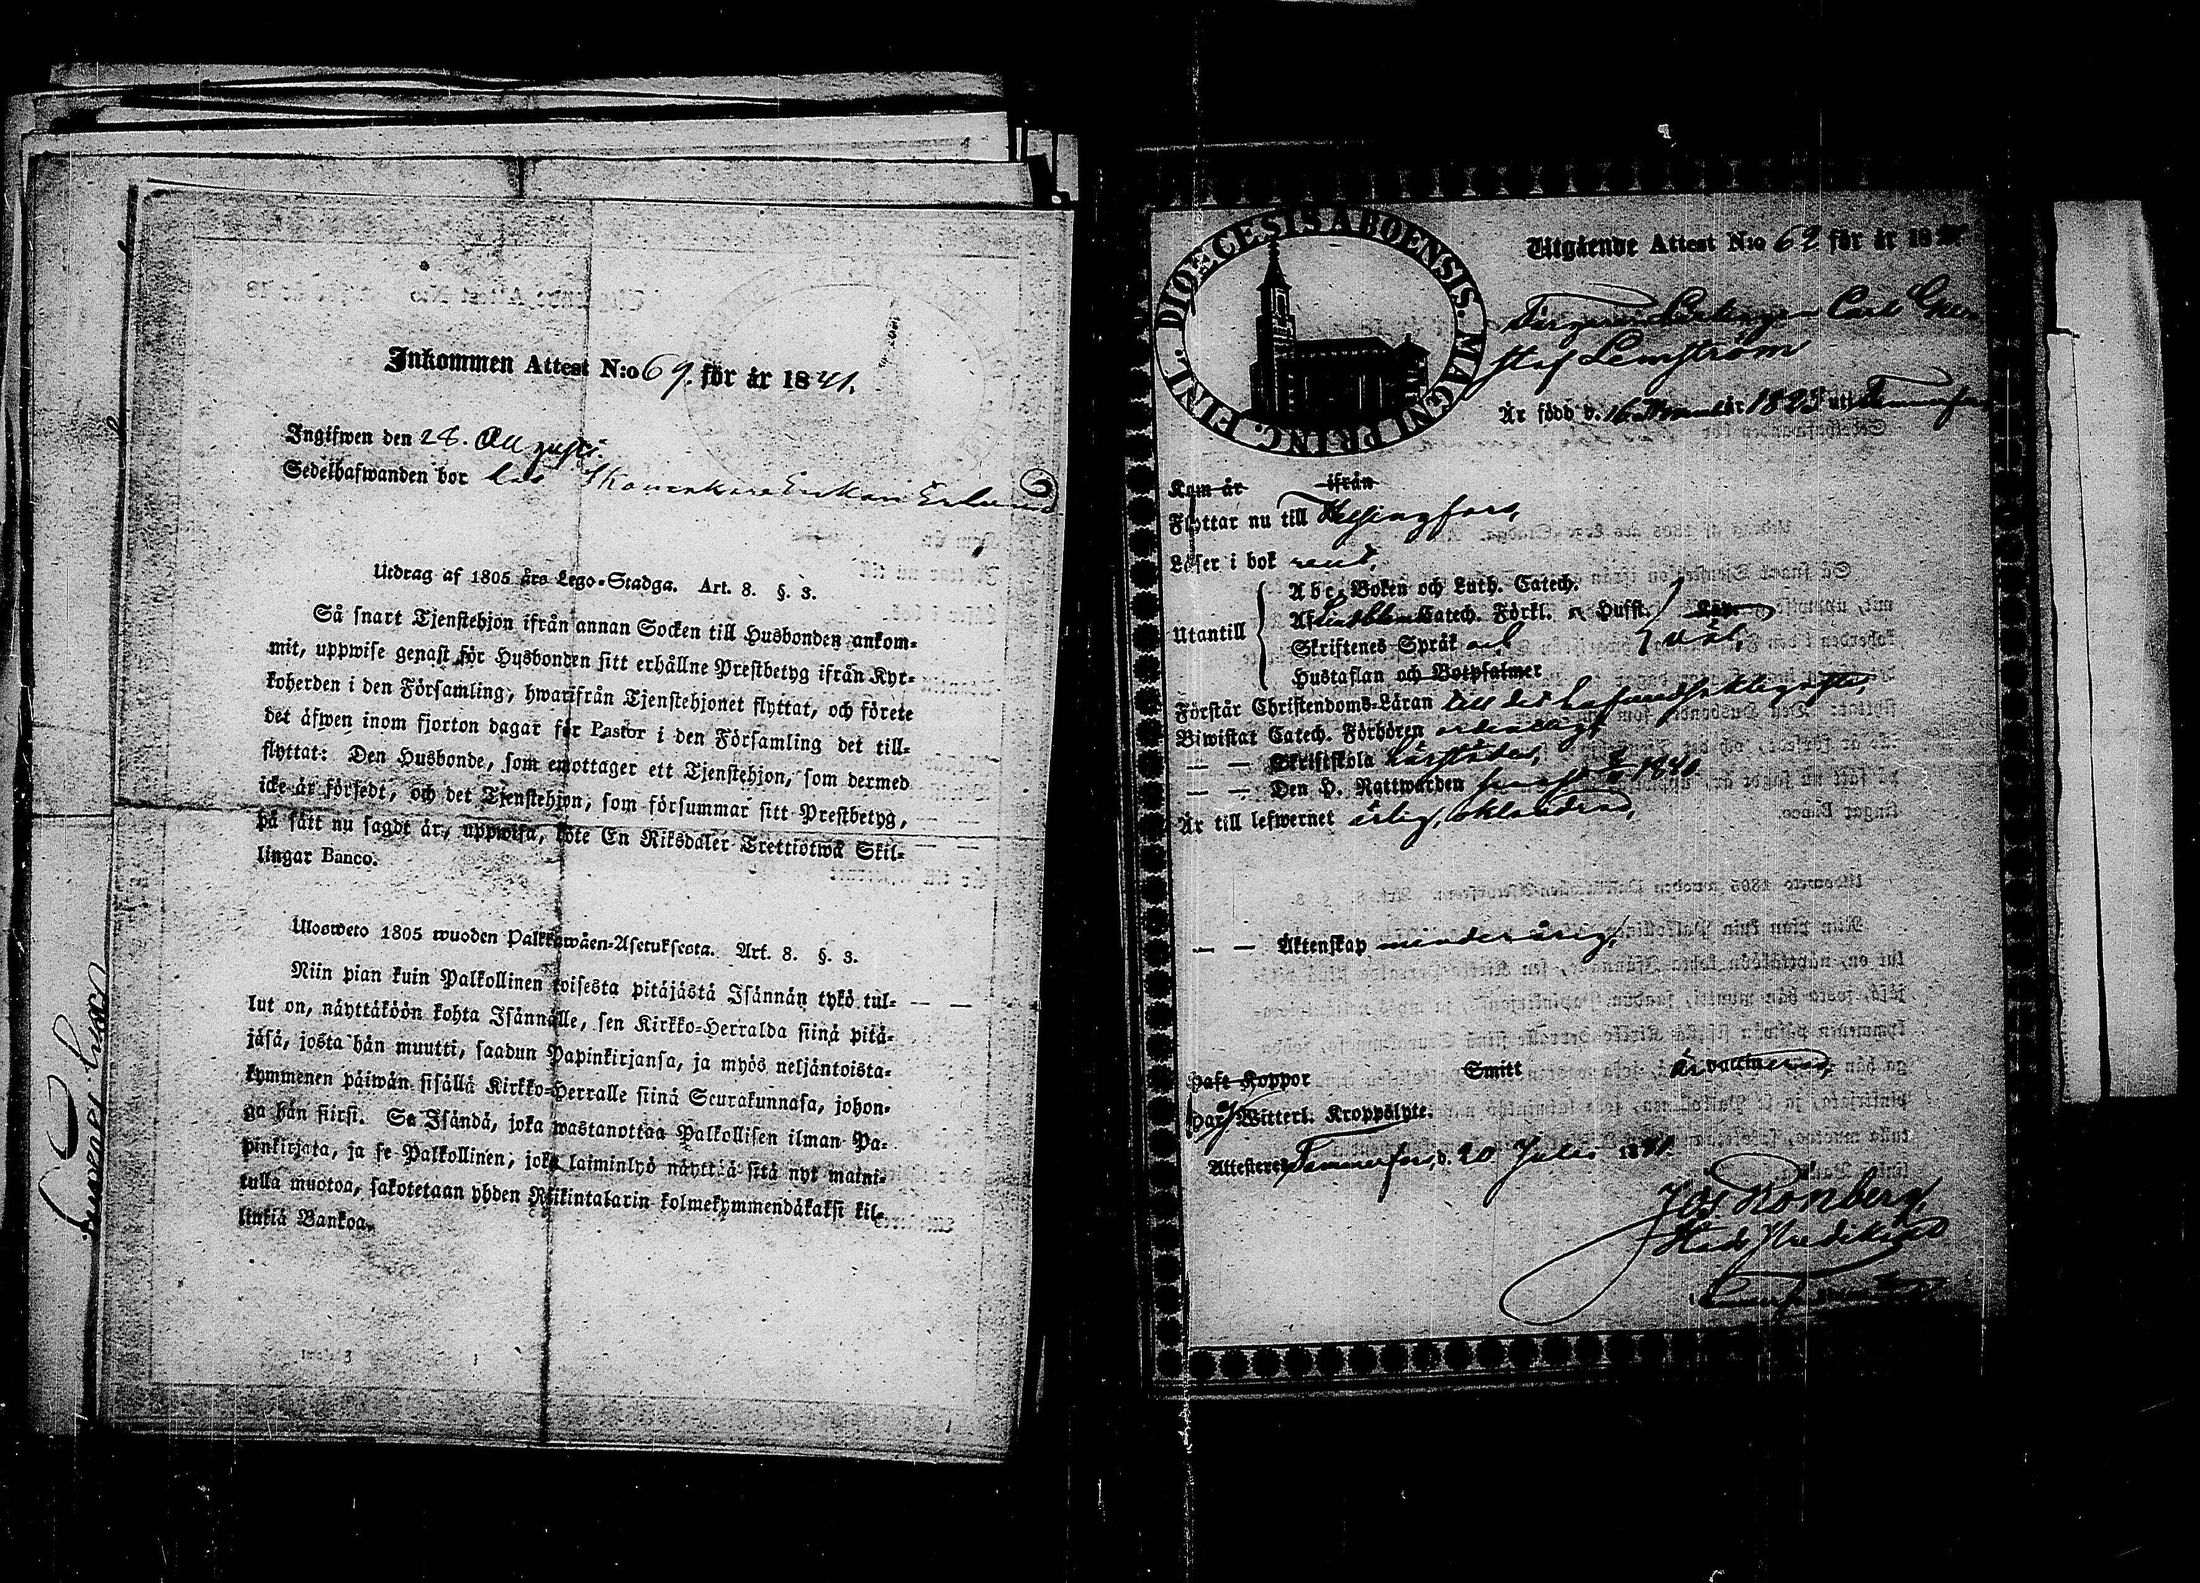 Inkommen Attest N:o 69. för år 1841.
Ingifwen den 28. Augusti.
Sedelhafwanden bor hos Skomakare Enkan Erlund
Utdrag af 1805 års Lego-Stadga. Art. 8. §. 3.
Så snart Tjenstehjon ifrån annan Socken till Husbonden ankom-
mit, uppwise genast för Husbonden sitt erhållne Prestbetyg ifrån Kyr-
koherden i den Församling, hwarifrån Tjenstehjonet flyttat, och förete
det äfwen inom fjorton dagar för Pastor i den Församling det till-
flyttat: Den Husbonde, som emottager ett Tjenstehjon, som dermed
icke är försedt, och det Tjenstehjon, som försummar sitt Prestbetyg,
på sätt nu sagdt är, uppwisa, böte En Riksdaler Trettiotwå Skil-
lingar Banco.
Ulosweto 1805 wuoden Palkkawäen-Asetuksesta. Art. 8. §. 3.
Niin pian kuin Palkollinen toisesta pitäjästä Isännän tykö tul-
lut on, näyttäköön kohta Isännälle, sen Kirkko-Herralda siinä pitä-
jäsä, josta hän muutti, saadun Papinkirjansa, ja myös neljäntoista-
kymmenen päiwän sisällä Kirkko-Herralle siinä Seurakunnasa, johon-
ga hän siirsi. Se Isändä, joka wastanottaa Palkollisen ilman Pa-
pinkirjata, ja se Palkollinen, joka laiminlyö näyttää sitä nyt maini-
tulla muotoa, sakotetaan yhden Riikintalarin kolmekymmendäkaksi kil-
linkiä Bankoa.
DIOECESIS ABOENSIS. MAGNI PRINC. FINL.
Utgående Attest N:o 62 för år 1841
Färgare Lärlingen Carl Gu
staf Lemström
Är född d. 16 1823 uti Tammerfors
Kom år ifrån
Flyttar nu till Helsingfors,
Läser i bok rent,
Utantill
Abc-Boken och Luth. Catech.
Af Catech. Förkl. Hufst.
Skriftenes Språk och väl,
Hustaflan och Botpsalmer
Förstår Christendoms-Läran till det
Biwistat Catech. Förhören ordentligt,
— — Skriftskola härstädes,
— — Den H. Nattwarden 1840
Är till lefwernet ärlig, oklandrad,
— — Äktenskap minderårig,
Haft Koppor Smitt är vaccinerad,
Har Witterl. Kroppslyte.
Attesterar Tammerfors, d. 20 Julii 1841.
Jos. Rönberg,
Stads Predikant